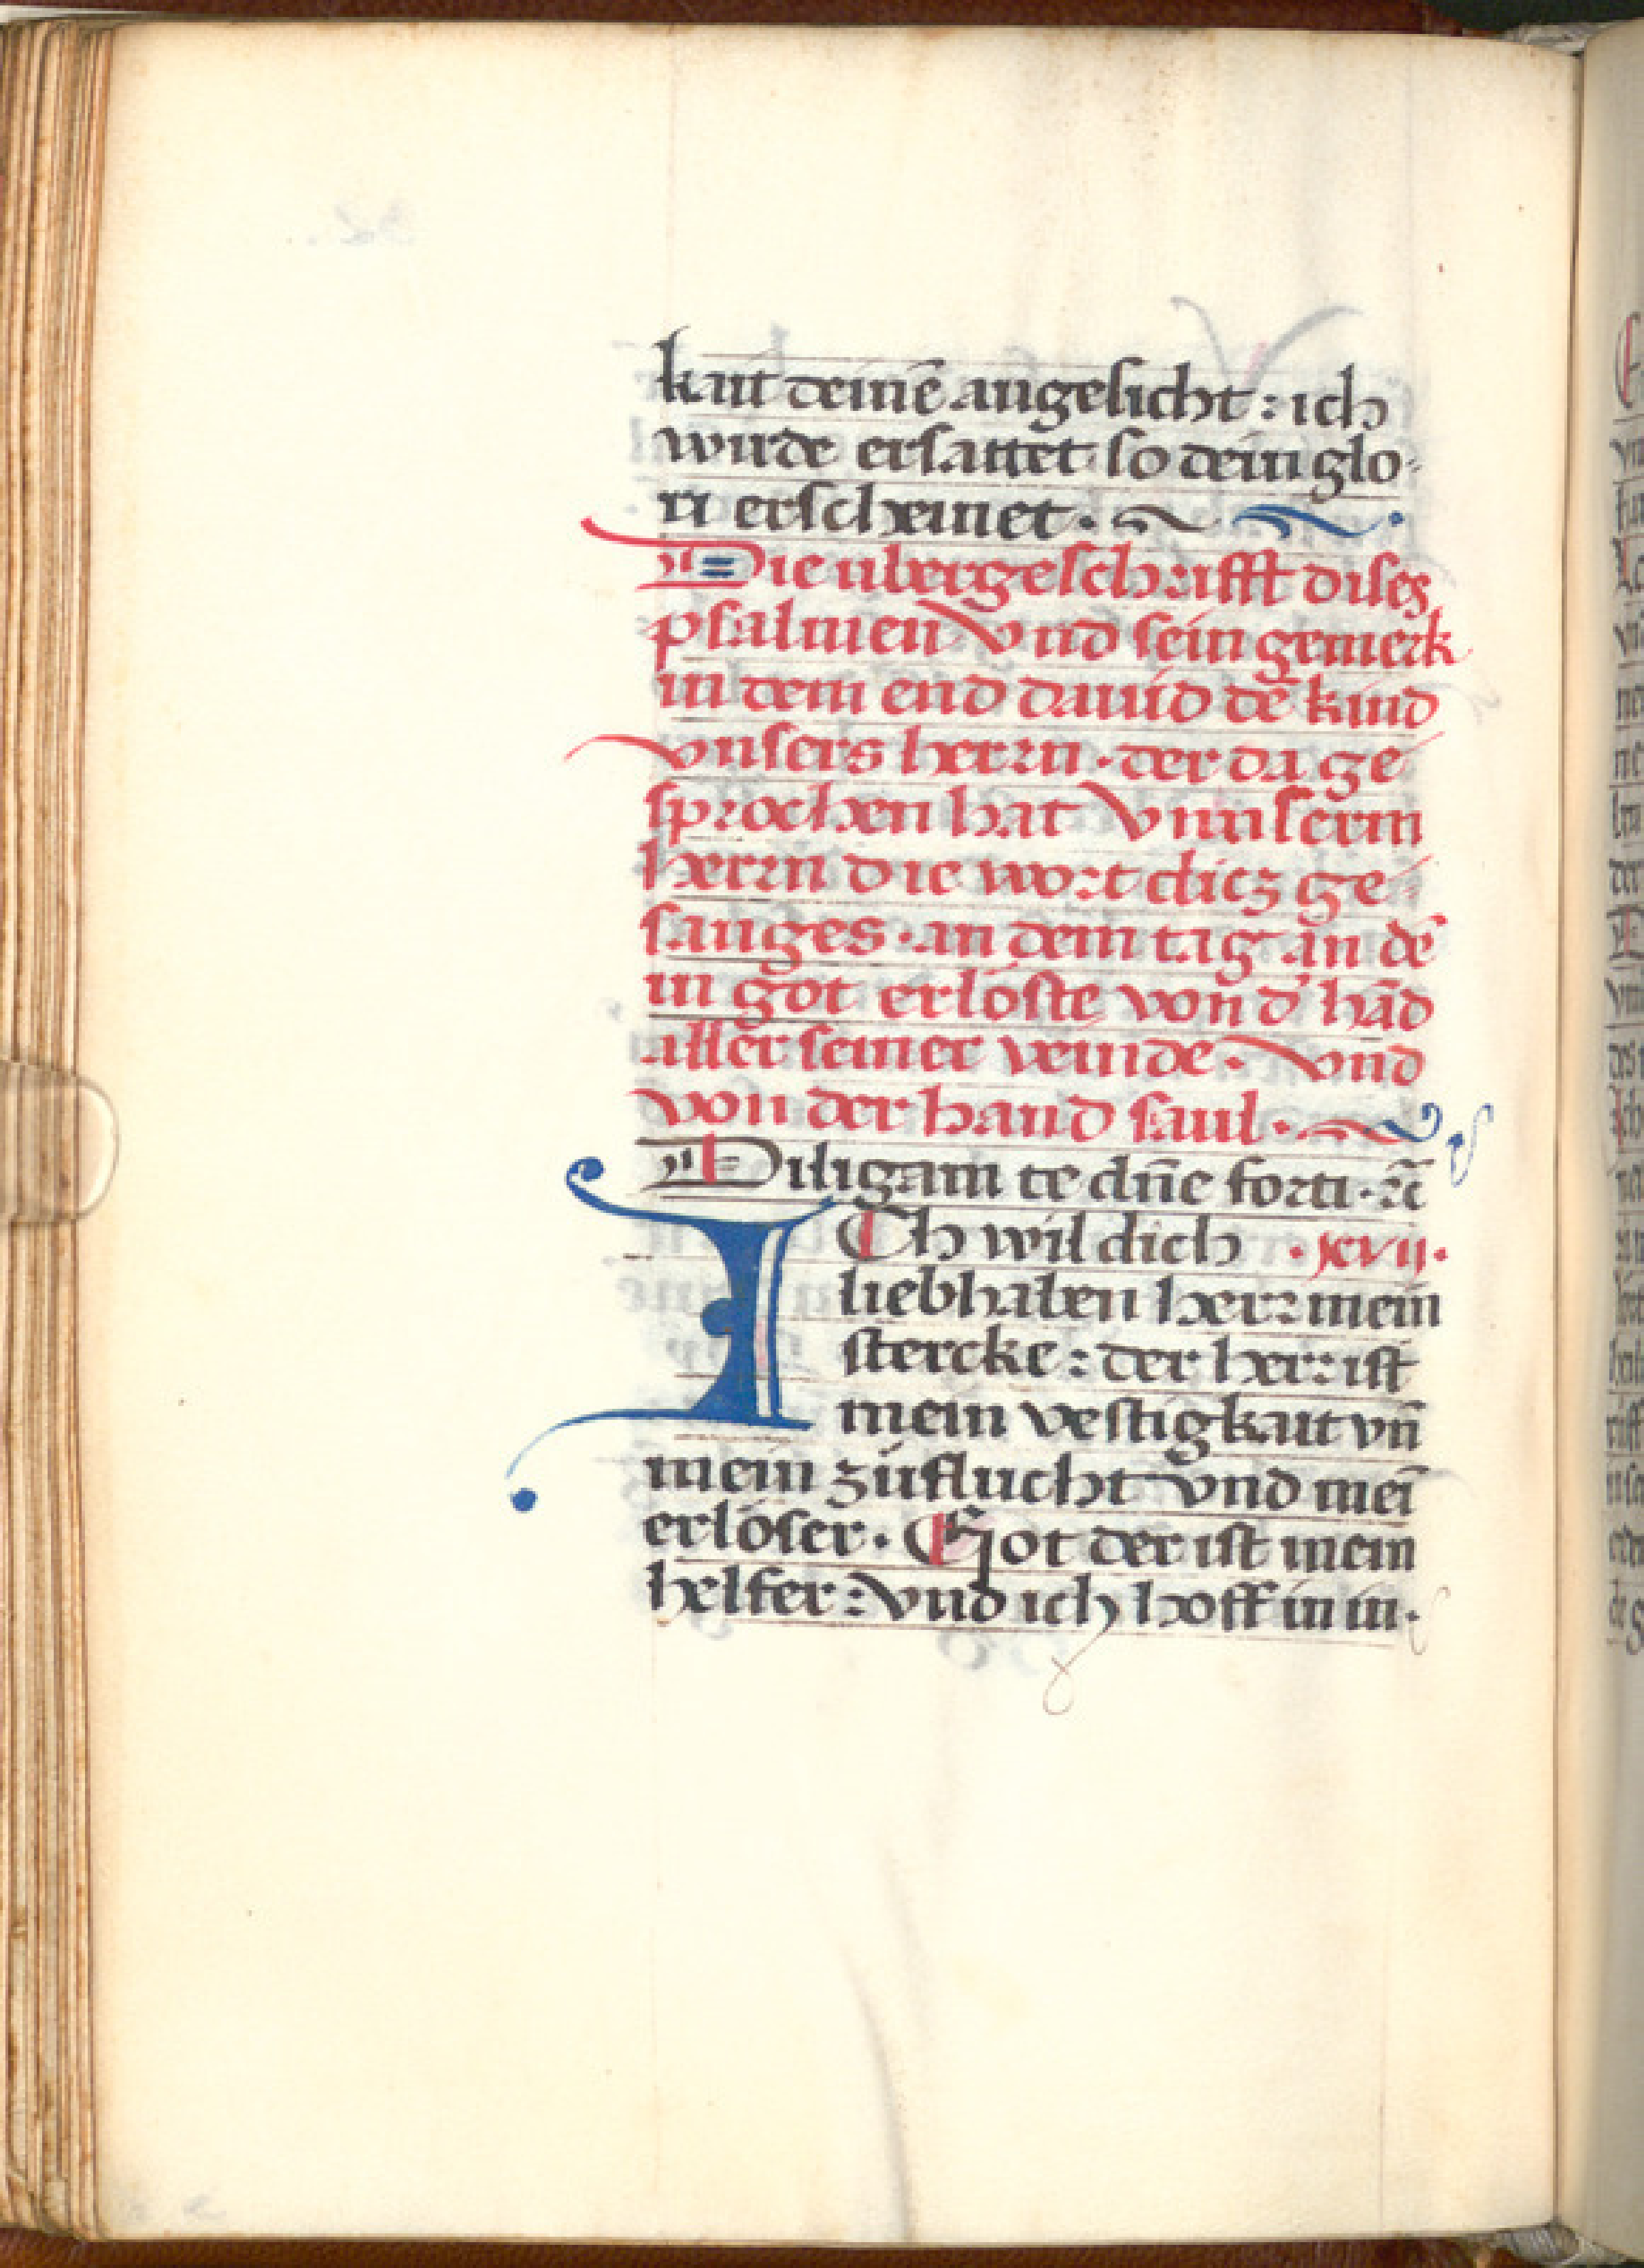 kait deinē angesicht : ich
wirde ersattet so dein glo-
ri erscheinet .
Die ubergeschrifft dises
psalmen vnd sein gemerk
in dem end dauid dē kind
vnsers herrn · der da ge
sprochen hat vnnserm
herrn die wort dicz ge-
sanges · an dem tag an dē
in got erlöste von d' hād
aller seiner veinde · vnd
von der hand saul ·
Diligam te dn̄e forti · rc̄
ICh wil dich · xvii ·
liebhaben herr mein
stercke : der herr ist
mein vestigkait vn̄
mein zůflucht vnd mei̅
erlöser · Got der ist mein
helfer : vnd ich hoff in in ·